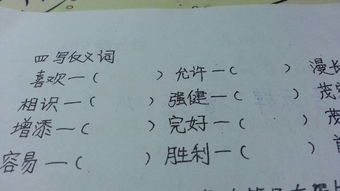 四 写反义词
喜欢—( ) 允许—( ) 漫长
相识—( ) 强健—( ) 茂
增添—( ) 完好—( )
容易—( ) 胜利—( )